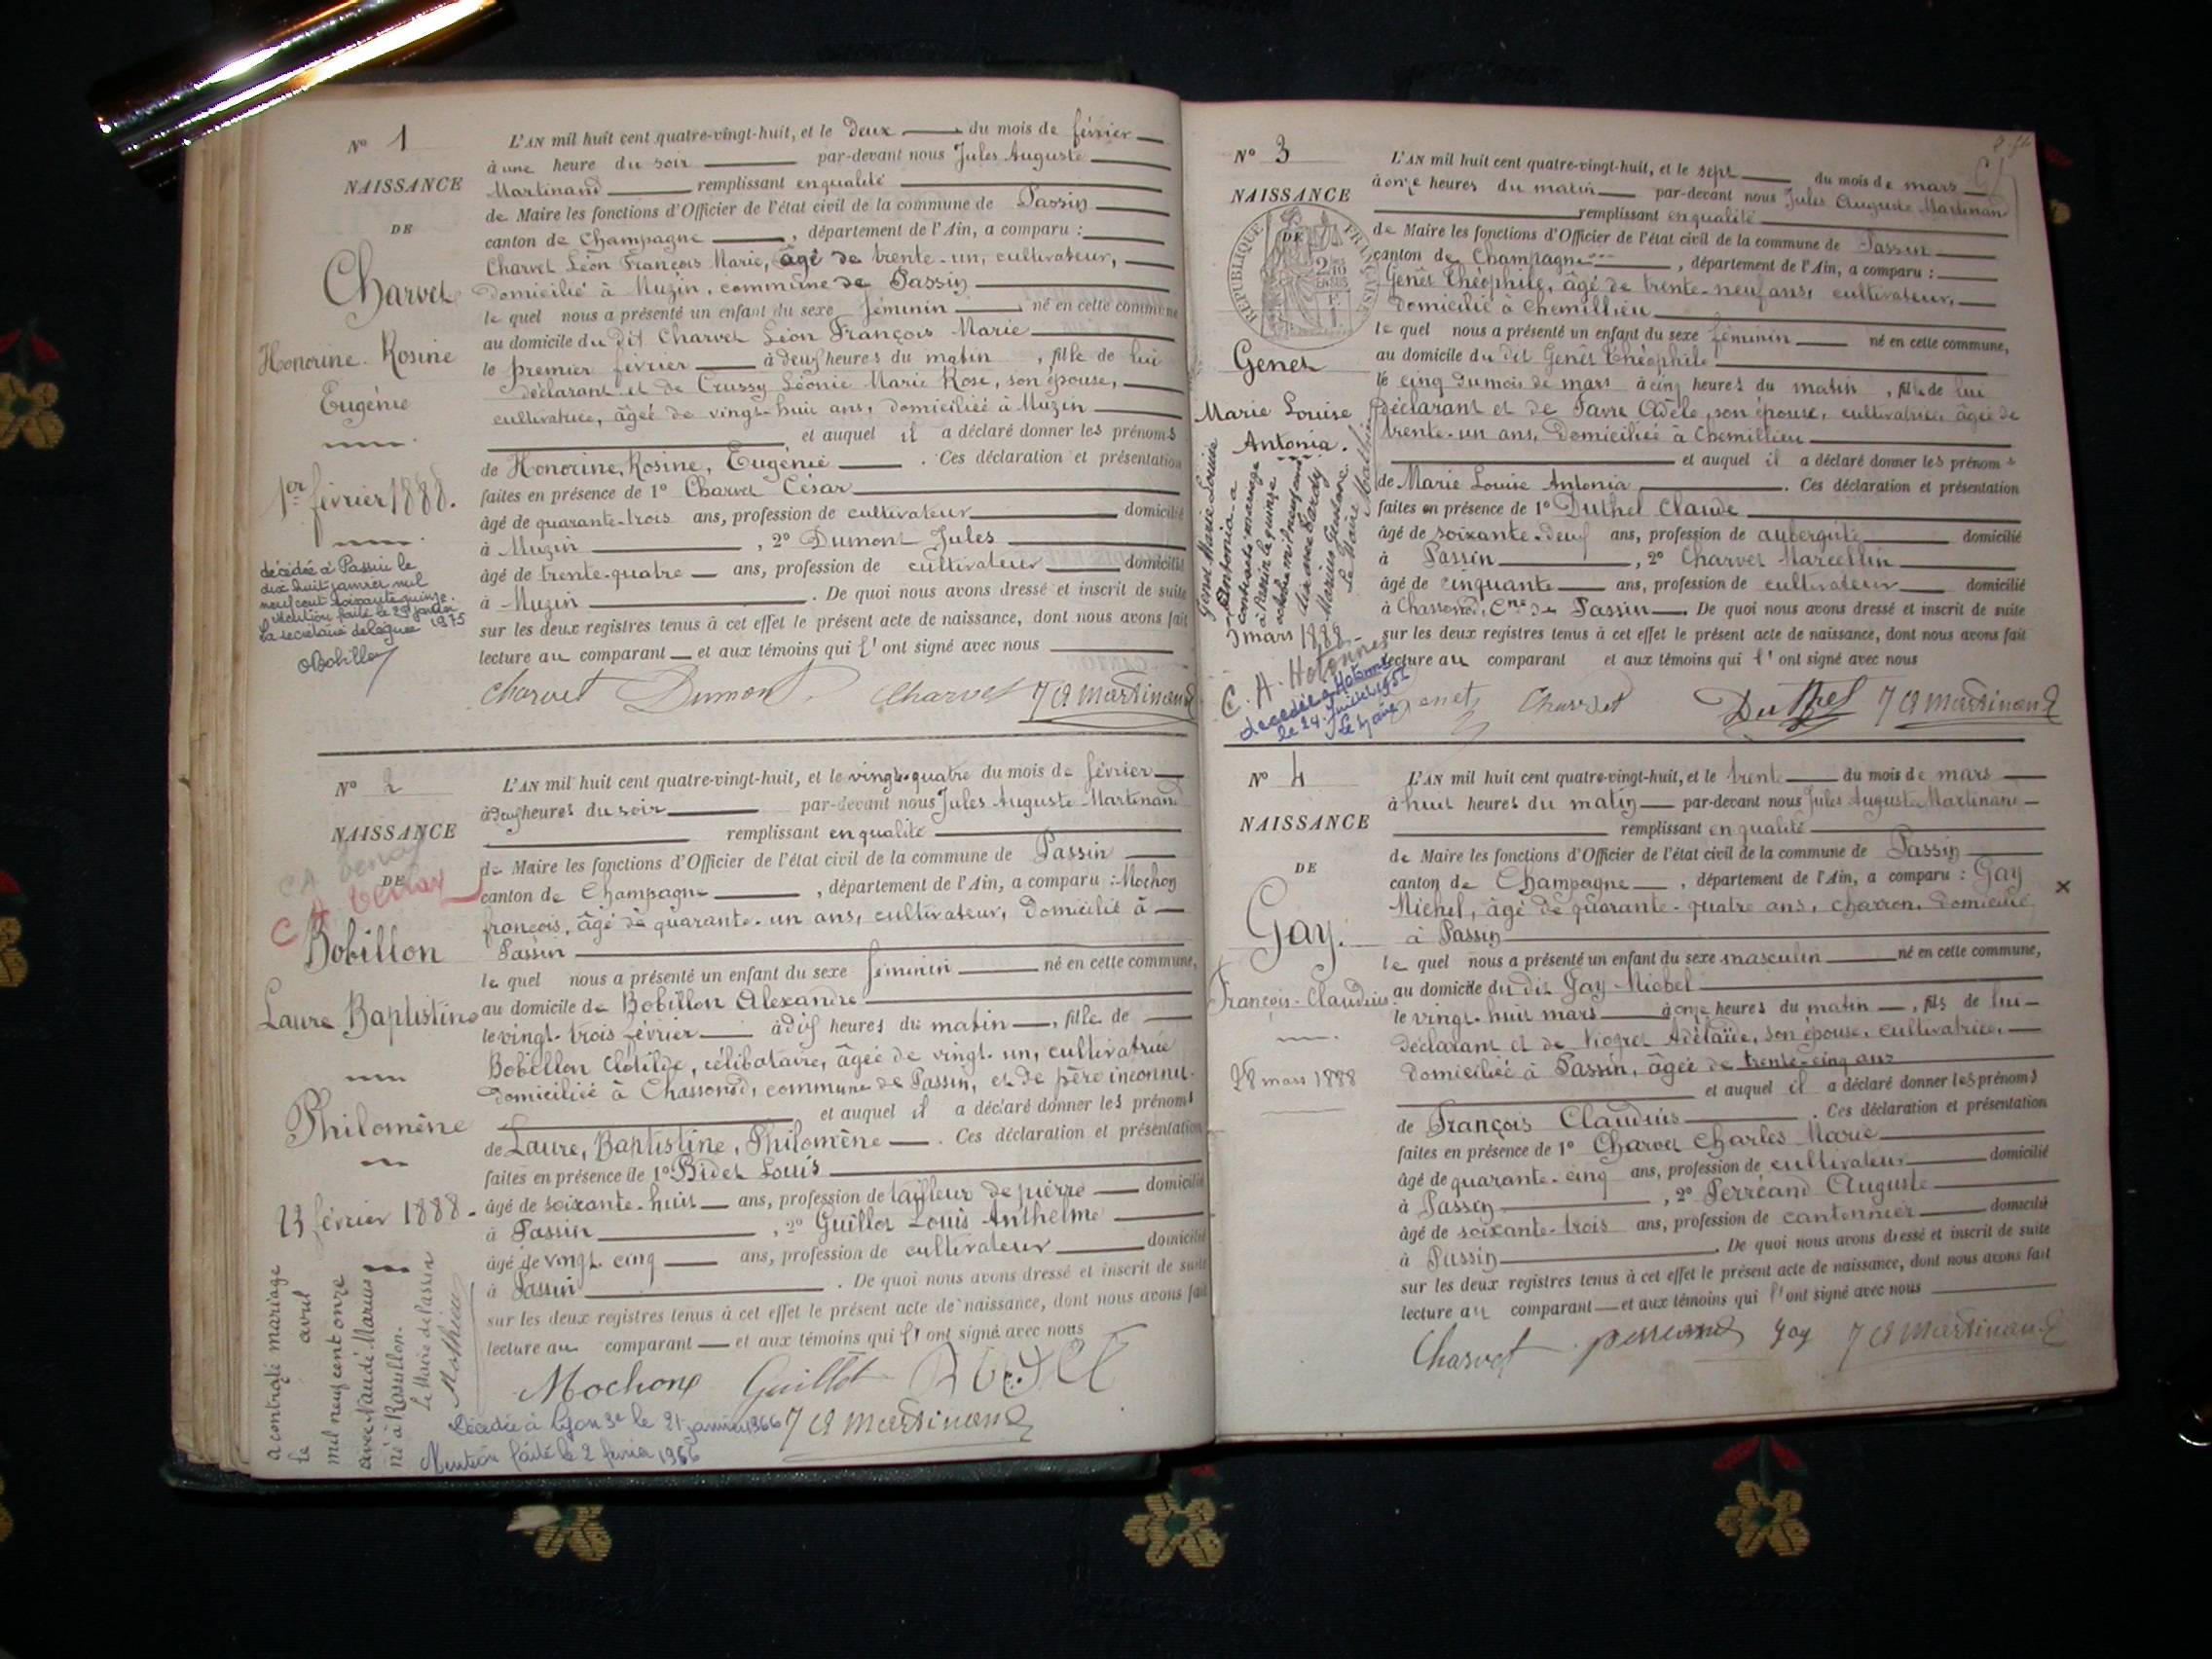 N° 1
NAISSANCE
DE
Charvet
Honorine Rosine
Eugénie
1er février 1888.
décédée à Passin le
dix huit janvier mil
neuf cent soixante quinze.
Mention faite le 29 janvier 1975
La secrétaire déléguée
L'AN mil huit cent quatre-vingt-huit, et le deux du mois de février
à une heure du soir par-devant nous Jules Auguste
Martinand remplissant en qualité
de Maire les fonctions d'Officier de l'état civil de la commune de Passin
canton de Champagne, département de l'Ain, a comparu :
Charvet Léon François Marie, âgé de trente-un, cultivateur,
domicilié à Muzin, commune de Passin
le quel nous a présenté un enfant du sexe féminin né en cette commune
au domicile du dit Charvet Léon François Marie
le premier février à deux heures du matin, fille de lui
déclarant et de Crussy Léonie Marie Rose, son épouse,
cultivatrice, âgée de vingt-huit ans, domiciliée à Muzin
et auquel il a déclaré donner les prénoms
de Honorine, Rosine, Eugénie. Ces déclaration et présentation
faites en présence de 1° Charvet César
âgé de quarante-trois ans, profession de cultivateur domicilié
à Muzin, 2° Dumont Jules
âgé de trente-quatre ans, profession de cultivateur domicilié
à Muzin. De quoi nous avons dressé et inscrit de suite
sur les deux registres tenus à cet effet le présent acte de naissance, dont nous avons fait
lecture au comparant et aux témoins qui l'ont signé avec nous
Charvet Dumont Charvet J A Martinand
N° 2
NAISSANCE
DE
Bobillon
Laure Baptistine
Philomène
23 février 1888.
a contracté mariage
le avril
mil neuf cent onze
avec Naudé Marius
Le Maire de Passin
Mathieu
L'AN mil huit cent quatre-vingt-huit, et le vingt-quatre du mois de février
à deux heures du soir par-devant nous Jules Auguste Martinand
remplissant en qualité
de Maire les fonctions d'Officier de l'état civil de la commune de Passin
canton de Champagne, département de l'Ain, a comparu : Mochon
françois, âgé de quarante-un ans, cultivateur, domicilié à
Passin
le quel nous a présenté un enfant du sexe féminin né en cette commune,
au domicile de Bobillon Alexandre
le vingt-trois février à dix heures du matin, fille de
Bobillon Clotilde, célibataire, âgée de vingt-un, cultivatrice
domiciliée à Chassonod, commune de Passin, et de père inconnu.
et auquel il a déclaré donner les prénoms
de Laure, Baptistine, Philomène. Ces déclaration et présentation
faites en présence de 1° Bidet Louis
âgé de soixante-huit ans, profession de tailleur de pierre domicilié
à Passin, 2° Guillot Louis Anthelme
âgé de vingt-cinq ans, profession de cultivateur domicilié
à Passin. De quoi nous avons dressé et inscrit de suite
sur les deux registres tenus à cet effet le présent acte de naissance, dont nous avons fait
lecture au comparant et aux témoins qui l'ont signé avec nous
Mochon Guillot Bidet
J A Martinand
Décédée à Lyon 3e le 21 janvier 1966
Mention faite le 2 février 1966
N° 3
NAISSANCE
DE
RÉPUBLIQUE FRANÇAISE
Genet
Marie Louise
Antonia.
Genet Marie Louise
Antonia a
contracté mariage
à Passin le quinze
octobre mil neuf cent
Marius Gustave
Le Maire Mathieu
5 mars 1888
C. A. Hotonnes
décédée à Hotonnes
le 24 Juillet 1952
Le Maire
L'AN mil huit cent quatre-vingt-huit, et le sept du mois de mars
à onze heures du matin par-devant nous Jules Auguste Martinand
remplissant en qualité
de Maire les fonctions d'Officier de l'état civil de la commune de Passin
canton de Champagne, département de l'Ain, a comparu :
Genet Théophile, âgé de trente-neuf ans, cultivateur,
domicilié à Chemillieu
le quel nous a présenté un enfant du sexe féminin né en cette commune,
au domicile du dit Genet Théophile
le cinq du mois de mars à cinq heures du matin, fille de lui
déclarant et de Favre Adèle, son épouse, cultivatrice, âgée de
trente-un ans, domiciliée à Chemillieu
et auquel il a déclaré donner les prénoms
de Marie Louise Antonia. Ces déclaration et présentation
faites en présence de 1° Duthel Claude
âgé de soixante-deux ans, profession de aubergiste domicilié
à Passin, 2° Charvet Marcellin
âgé de cinquante ans, profession de cultivateur domicilié
à Chassonod, Cne de Passin. De quoi nous avons dressé et inscrit de suite
sur les deux registres tenus à cet effet le présent acte de naissance, dont nous avons fait
lecture au comparant et aux témoins qui l'ont signé avec nous
Genet Charvet Duthel J A Martinand
N° 4
NAISSANCE
DE
Gay.
François-Claudius
28 mars 1888
L'AN mil huit cent quatre-vingt-huit, et le trente du mois de mars
à huit heures du matin par-devant nous Jules Auguste Martinand
remplissant en qualité
de Maire les fonctions d'Officier de l'état civil de la commune de Passin
canton de Champagne, département de l'Ain, a comparu : Gay
Michel, âgé de quarante-quatre ans, charron, domicilié
à Passin
le quel nous a présenté un enfant du sexe masculin né en cette commune,
au domicile du dit Gay Michel
le vingt-huit mars à onze heures du matin, fils de lui
déclarant et de Adélaïde, son épouse, cultivatrice,
domiciliée à Passin, âgée de trente-cinq ans
et auquel il a déclaré donner les prénoms
de François Claudius. Ces déclaration et présentation
faites en présence de 1° Charvet Charles Marie
âgé de quarante-cinq ans, profession de cultivateur domicilié
à Passin, 2° Perréand Auguste
âgé de soixante-trois ans, profession de cantonnier domicilié
à Passin. De quoi nous avons dressé et inscrit de suite
sur les deux registres tenus à cet effet le présent acte de naissance, dont nous avons fait
lecture au comparant et aux témoins qui l'ont signé avec nous
Charvet perreand Gay J A Martinand